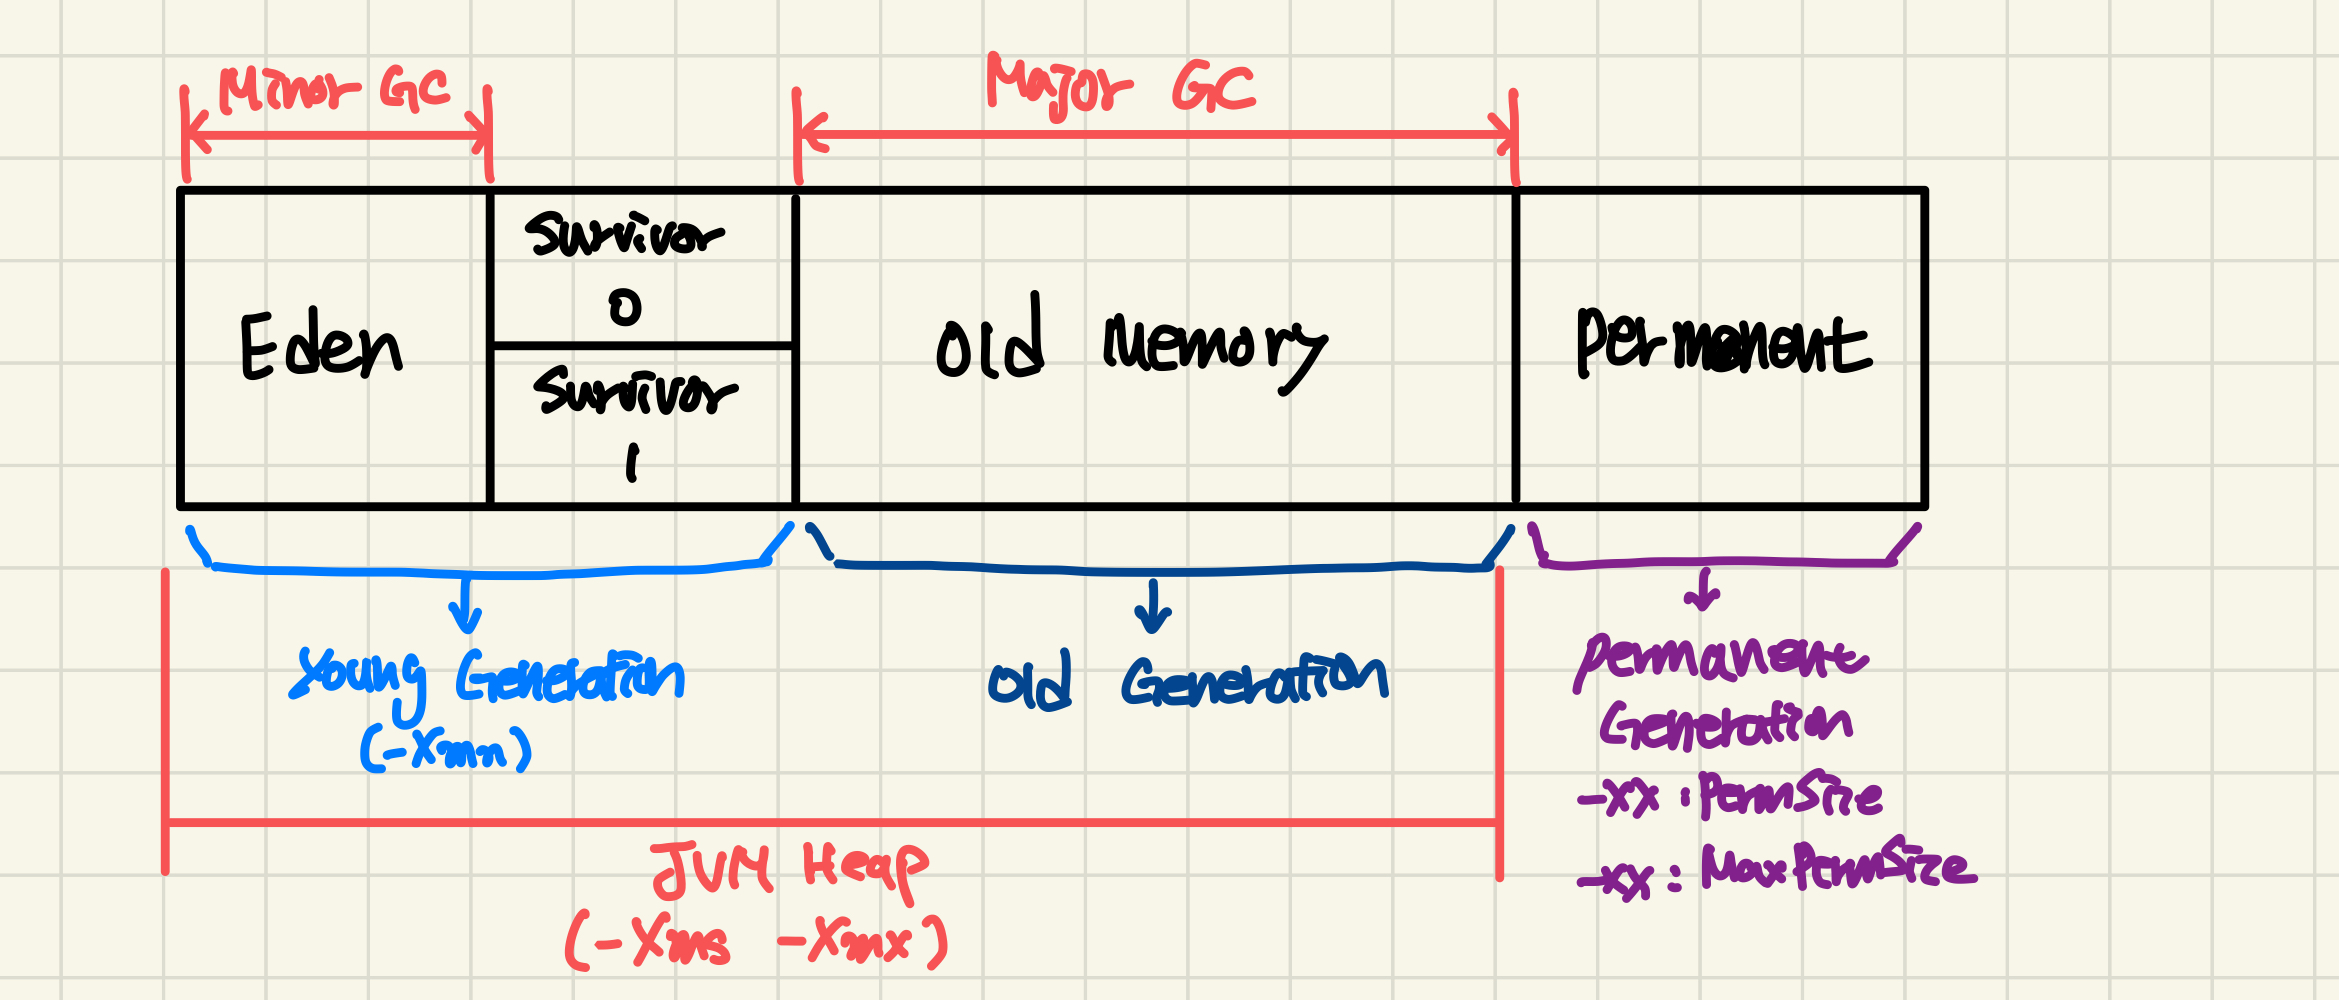 Minor GC
Major GC
Eden
Survivor
0
Survivor
1
Old Memory
Permanent
Young Generation
(-Xmn)
Old Generation
Permanent
Generation
-XX : PermSize
-XX : MaxPermSize
JVM Heap
(-Xms -Xmx)